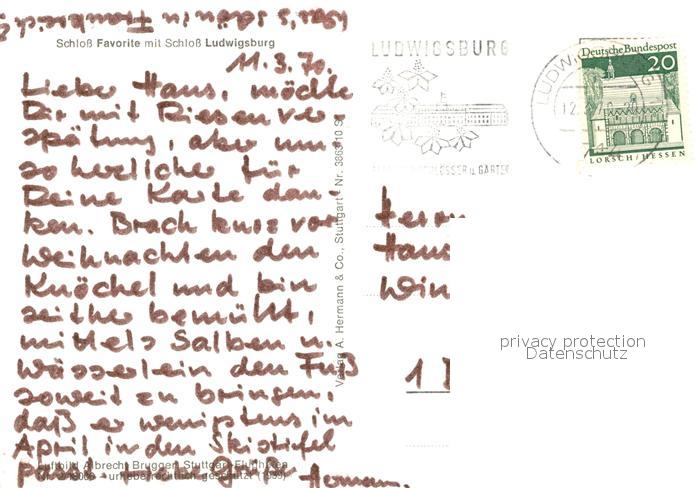 Schloß Favorite mit Schloß Ludwigsburg
11.3.70.
Liebe Hans, möchte
Dir mit Riesenver
spätung, aber um
so herzlicher für
Deine Karte dan-
ken. Brach kurz vor
Weihnachten den
Knöchel und bin
seither bemüht,
mittels Salben u.
Wässerlein den Fuß
soweit zu bringen,
daß er wenigstens im
April in den Skistiefel
paßt.
Hermann.
Luftbild Albrecht Brugger, Stuttgart-Flughafen
urheberrechtlich geschützt
Verlag A. Hermann & Co., Stuttgart Nr. 3863 10 S
LUDWIGSBURG
SCHLÖSSER u. GÄRTEN
LUDWIG
12.
Deutsche Bundespost
20
LORSCH/HESSEN
Herrn
Hans
Win
1
privacy protection
Datenschutz